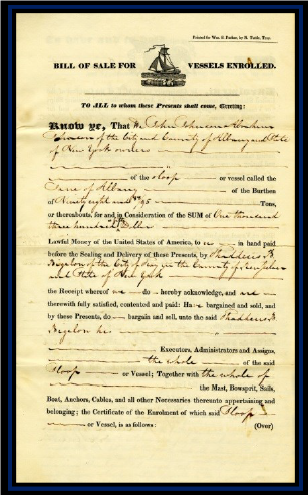 Printed for Wm. S. Parker, by N. Tuttle, Troy.
BILL OF SALE FOR VESSELS ENROLLED.
TO ALL to whom these Presents shall come, Greeting:
Know ye, That We John Johnson Abraham
Johnson of the City and County of Albany and State
of New York owners
of the sloop or vessel called the
Jane of Albany of the Burthen
of Ninety eight and 95 Tons,
or thereabouts, for and in Consideration of the SUM of One thousand
three hundred Dollars
Lawful Money of the United States of America, to us in hand paid
before the Sealing and Delivery of these Presents, by Thaddeus B
Bigelow of the City of Troy in the County of Rensselaer
and State of New York
the Receipt whereof we do hereby acknowledge, and are
therewith fully satisfied, contented and paid: Have bargained and sold, and
by these Presents, do bargain and sell, unto the said Thaddeus B
Bigelow his
Executors, Administrators and Assigns,
the whole of the said
Sloop or Vessel; Together with the whole of
the Mast, Bowsprit, Sails,
Boat, Anchors, Cables, and all other Necessaries thereunto appertaining and
belonging; the Certificate of the Enrolment of which said Sloop
or Vessel, is as follows: (Over)